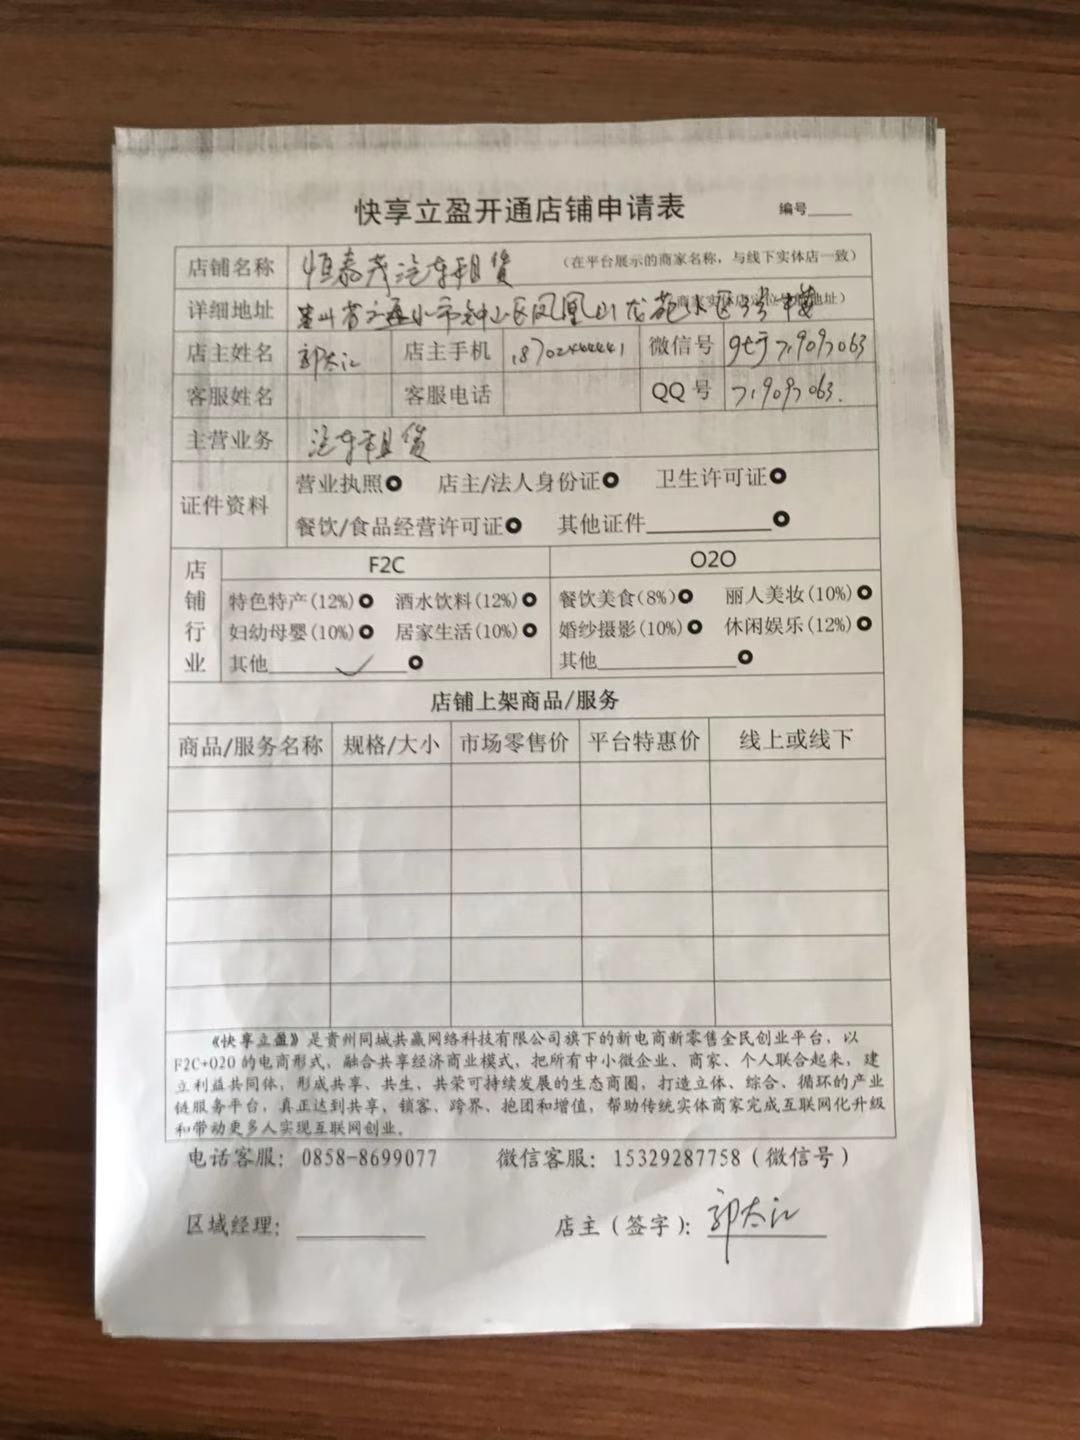 快享立盈开通店铺申请表 编号
店铺名称 恒泰茂汽车租赁 (在平台展示的商家名称，与线下实体店一致)
详细地址 省六盘水市钟山区凤凰山龙苑
店主姓名 郭太江 店主手机 微信号
客服姓名 客服电话 QQ 号 719097063.
主营业务 汽车租赁
证件资料 营业执照 店主/法人身份证 卫生许可证
餐饮/食品经营许可证 其他证件
店铺行业 F2C O2O
特色特产(12%) 酒水饮料(12%) 餐饮美食(8%) 丽人美妆(10%)
妇幼母婴(10%) 居家生活(10%) 婚纱摄影(10%) 休闲娱乐(12%)
其他 ✓ 其他
店铺上架商品/服务
商品/服务名称 规格/大小 市场零售价 平台特惠价 线上或线下
《快享立盈》是贵州同城共赢网络科技有限公司旗下的新电商新零售全民创业平台，以
F2C+O2O 的电商形式，融合共享经济商业模式，把所有中小微企业、商家、个人联合起来，建
立利益共同体，形成共享、共生、共荣可持续发展的生态商圈，打造立体、综合、循环的产业
链服务平台，真正达到共享、锁客、跨界、抱团和增值，帮助传统实体商家完成互联网化升级
和带动更多人实现互联网创业。
电话客服：0858-8699077 微信客服：15329287758（微信号）
区域经理： 店主（签字）：郭太江